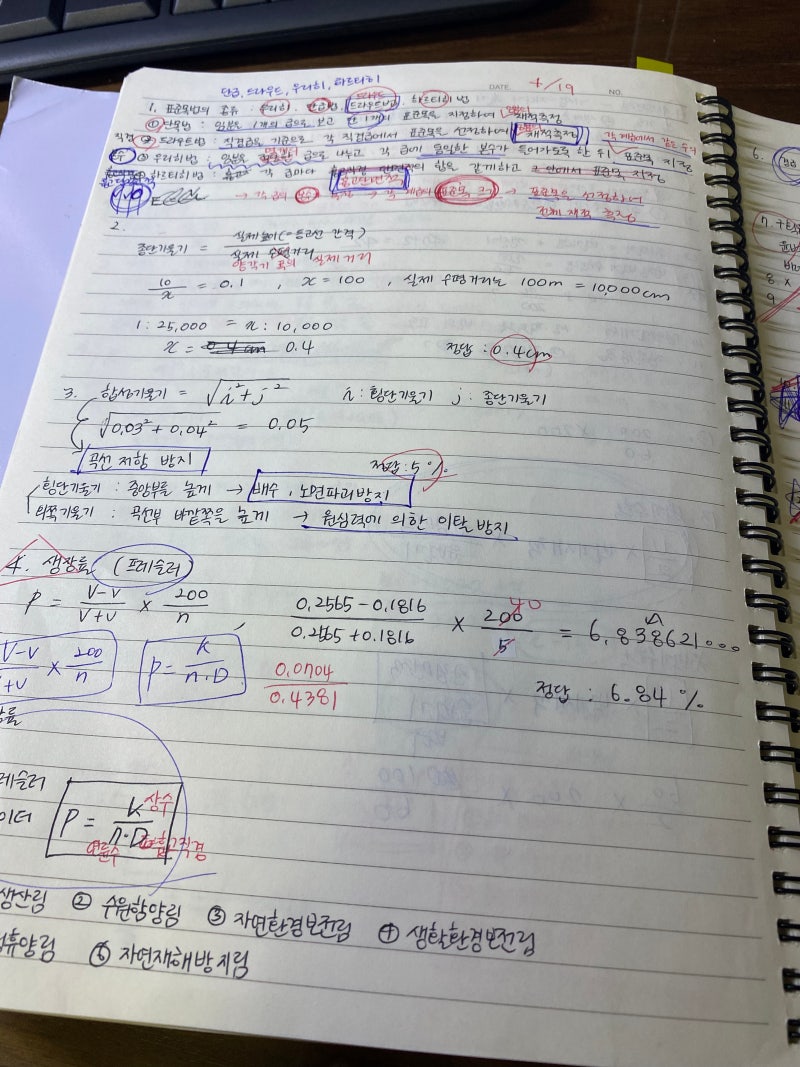 단급, 드라우드, 우리히, 하르티히
DATE. 4/19 NO.
1. 표준목법의 종류 : 우리히, 단급법, 드라우드법, 하르티히법
① 단목법 : 임분을 1개의 급으로 보고 한 1개의 표준목을 지정하여 재적측정
직경 ② 드라우드법 : 직경급을 기준으로 각 직경급에서 표준목을 선정하여 재적측정
본수 ③ 우리히법 : 임분을 급으로 나누고 각 급에 동일한 본수가 들어가도록 한 뒤 표준목 지정
하르티히법 : 각 급마다 흉고단면적 합을 같게하고 표준목 지정
→ 각 급의 본수 → 표준목을 선정하여
전체 재적 측정
2.
종단기울기 = 실제높이(=등고선 간격) / 실제 수평거리
양각기 폭의 실제거리
10/x = 0.1 , x = 100 , 실제 수평거리는 100m = 10,000cm
1 : 25,000 = x : 10,000
x = 0.4 정답 : 0.4cm
3. 합성기울기 = √i²+j² i : 횡단기울기 j : 종단기울기
√0.03²+0.04² = 0.05
곡선 저항 방지 정답 : 5%
횡단기울기 : 중앙부를 높게 → 배수, 노면파괴방지
외쪽기울기 : 곡선부 바깥쪽을 높게 → 원심력에 의한 이탈 방지
4. 생장률 (프레슬러)
P = V-v/V+v × 200/n 0.2565-0.1816/0.2565+0.1816 × 200/5 = 6.838621...
40
V-v/+v × 200/n P = K/n·D 0.0704/0.4381 정답 : 6.84 %
레슬러
이더 P = K/n·D
상수
연륜수 흉고직경
생산림 ② 수원함양림 ③ 자연환경보전림 ④ 생활환경보전림
휴양림 ⑥ 자연재해방지림
6.
7.
8 ×
9